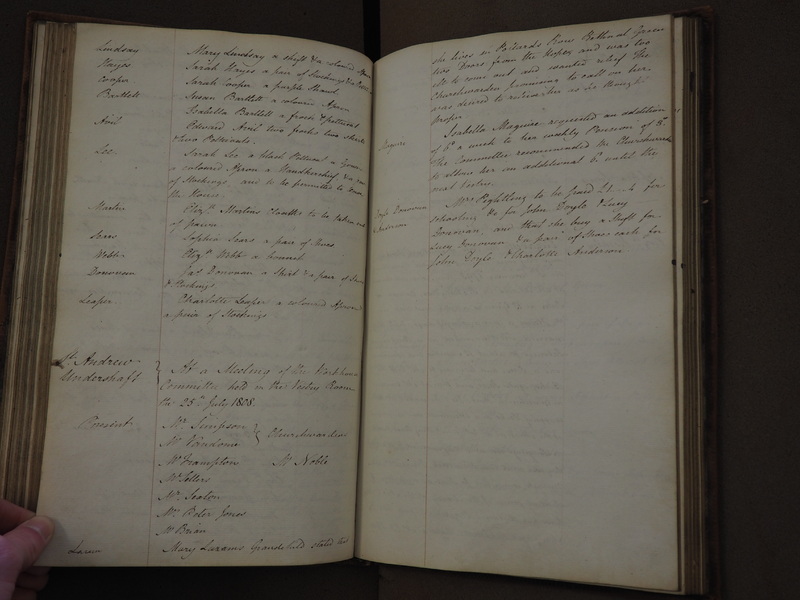 Lindsay Mary Lindsay a shift & a coloured Apron
Hayes Sarah Hayes a pair of Stockings &
Cooper Sarah Cooper a purple Shawl
Bartlett Susan Bartlett a coloured Apron
Isabella Bartlett a frock & petticoat
Avril Edward Avril two frocks two shirts
& two Petticoats.
Lee Sarah Lee a black Petticoat a Gown
a coloured Apron a Handkerchief & a pair
of Stockings, and to be permitted to leave
the House.
Martin Eliz.th Martins Cloaths to be taken out
of pawn
Sears Sophia Sears a pair of Shoes
Webb Eliz.th Webb a bonnet
Donovan Donovan a Shirt & a pair of Shoes
& Stockings
Leaper Charlotte Leaper a coloured Apron
a pair of Stockings
St. Andrew
Undershaft
At a Meeting of the Workhouse
Committee held in the Vestry Room
the 25th July 1808.
Present
Mr. Simpson
Mr. Vandome } Churchwardens
Mr. Frampton Mr Noble
Mr. Sellers
Mr. Seaton
Mr. Peter Jones
Mr Brian
Laram Mary Larams Grandchild stated that
she lives in Pollards Row Bethnal Green
two Doors from the Hope, and was too
ill to come out and wanted relief The
Churchwarden promising to call on her.
was desired to relieve her as he thought
proper.
Maguire Isabella Maguire requested an addition
of 6d a week to her weekly Pension of 3s.
The Committee recommended the Churchwarden
to allow her an additional 6d until the
next Vestry.
Doyle Donovan
Anderson
Mrs. Pightling to be paid for
schooling &c for John Doyle & Lucy
Donovan, and that she buy a Shift for
Lucy Donovan & a pair of Shoes each for
John Doyle & Charlotte Anderson